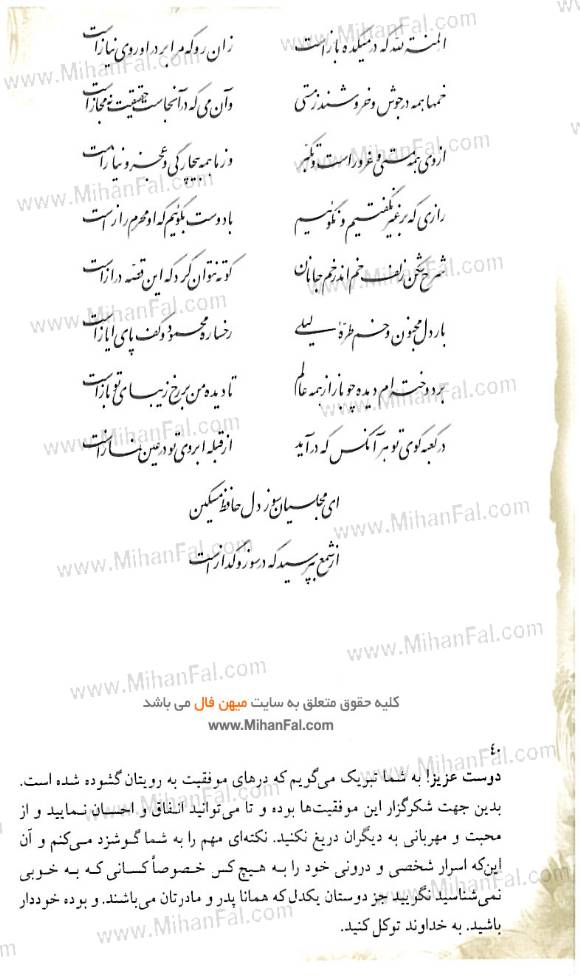 المنة لله که در میکده باز است زان رو که مرا بر در او روی نیاز است
خمها همه در جوش و خروشند ز مستی وان می که در آنجاست حقیقت نه مجاز است
از وی همه مستی و غرور است و تکبر وز ما همه بیچارگی و عجز و نیاز است
رازی که بر غیر نگفتیم و نگوییم با دوست بگوئیم که او محرم راز است
شرح شکن زلف خم اندر خم جانان کوته نتوان کرد که این قصه دراز است
بار دل مجنون و خم طرهٔ لیلی رخساره محمود و کف پای ایاز است
بر دوخته‌ام دیده چو باز از همه عالم تا دیده من بر رخ زیبای تو باز است
در کعبه کوی تو هر آنکس که درآید از قبله ابروی تو در عین نماز است
ای مجلسیان سوز دل حافظ مسکین
از شمع بپرسید که در سوز و گداز است
کلیه حقوق متعلق به سایت میهن فال می باشد
www.MihanFal.com
٤٠
دوست عزیز! به شما تبریک می‌گویم که درهای موفقیت به رویتان گشوده شده است.
بدین جهت شکرگزار این موفقیت‌ها بوده و تا می‌توانید انفاق و احسان نمایید و از
محبت و مهربانی به دیگران دریغ نکنید. نکته‌ای مهم را به شما گوشزد می‌کنم و آن
این‌که اسرار شخصی و درونی خود را به هیچ کس خصوصاً کسانی که به خوبی
نمی‌شناسید نگویید جز دوستان یکدل که همانا پدر و مادرتان می‌باشند. و بوده خوددار
باشید. به خداوند توکل کنید.